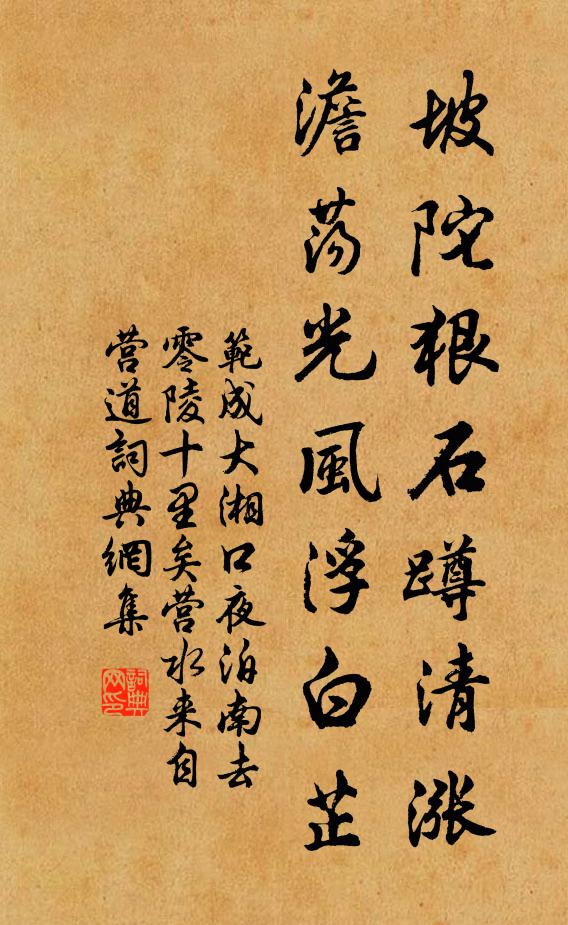 坡陀狠石蹲清漲
澹蕩光風浮白芷
範成大湘口夜泊南去
零陵十里矣营水来自
营道詞典網集
詞典网印